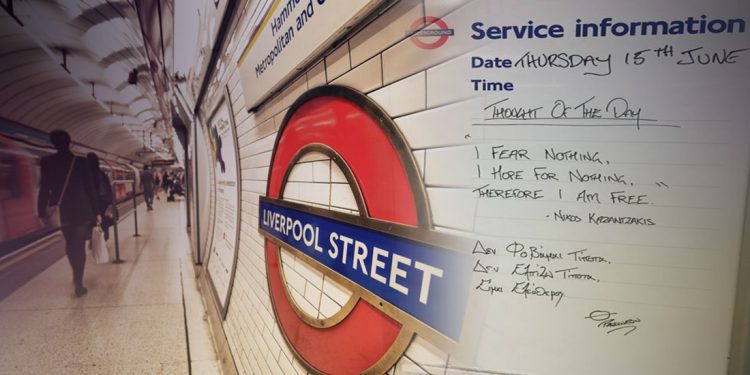 Metropolitan and
LIVERPOOL STREET
UNDERGROUND
Service information
Date THURSDAY 15TH JUNE
Time
THOUGHT OF THE DAY
"I FEAR NOTHING,
I HOPE FOR NOTHING,
THEREFORE I AM FREE."
- NIKOS KAZANTZAKIS
Δεν Φοβάμαι Τίποτα.
Δεν Ελπίζω Τίποτα.
Είμαι Ελεύθερος